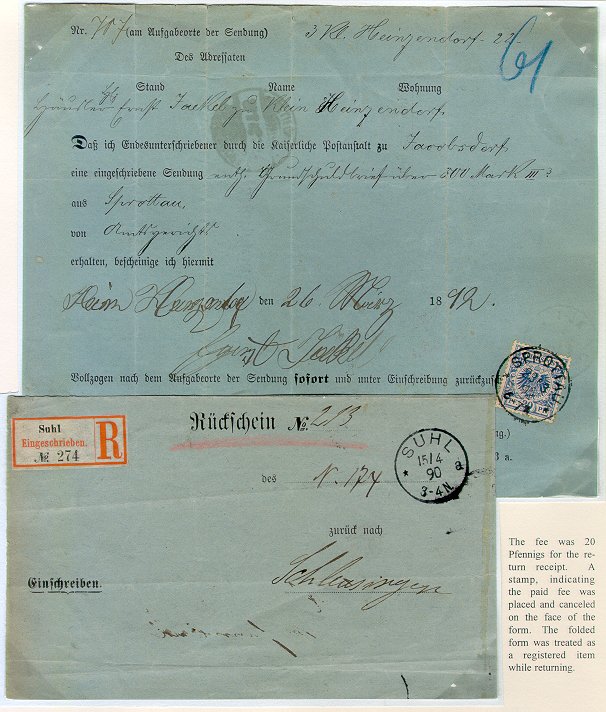 Nr. 707 (am Aufgabeorte der Sendung) 3 Kl. Heinzendorf 22
61
Des Adressaten
Stand Name Wohnung
Häusler Ernst Jaekel zu Klein Heinzendorf
Daß ich Endesunterschriebener durch die Kaiserliche Postanstalt zu Jacobsdorf
eine eingeschriebene Sendung enth. Grundschuldbrief über 300 Mark III
aus Sprottau
von Amtsgerichts
erhalten, bescheinige ich hiermit
Klein Heinzendorf den 26. März 1892.
Ernst Jäkel
Vollzogen nach dem Aufgabeorte der Sendung sofort und unter Einschreibung zurückzus
SPROTTAU
ng.)
3 a.
Suhl
Eingeschrieben.
№ 274
R
Rückschein №. 213
SUHL
15/4
90
3-4N.
* a
des N. 174
zurück nach
Einschreiben.
Schleusingen
The fee was 20
Pfennigs for the re-
turn receipt. A
stamp, indicating
the paid fee was
placed and canceled
on the face of the
form. The folded
form was treated as
a registered item
while returning.